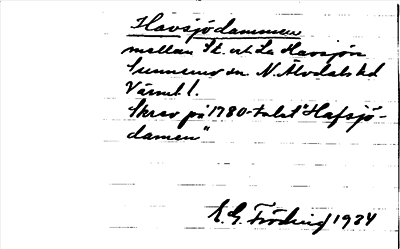 Havsjödammen
mellan St. och La Havsjön
Sunnemo sn. N. Älvdals hd
Värml.
Skrev på 1780-talet "Hafsjö-
damen"
E. G. Fröding 1934